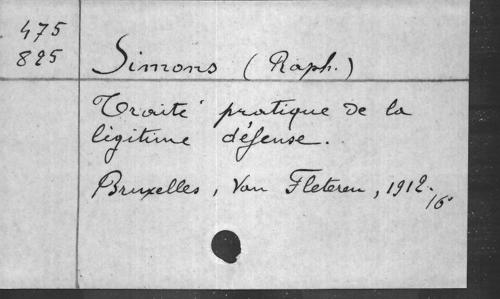 475
895
Simons (Raph.)
Traité pratique de la
légitime défense.
Bruxelles, Van Fleteren, 1912.
16°